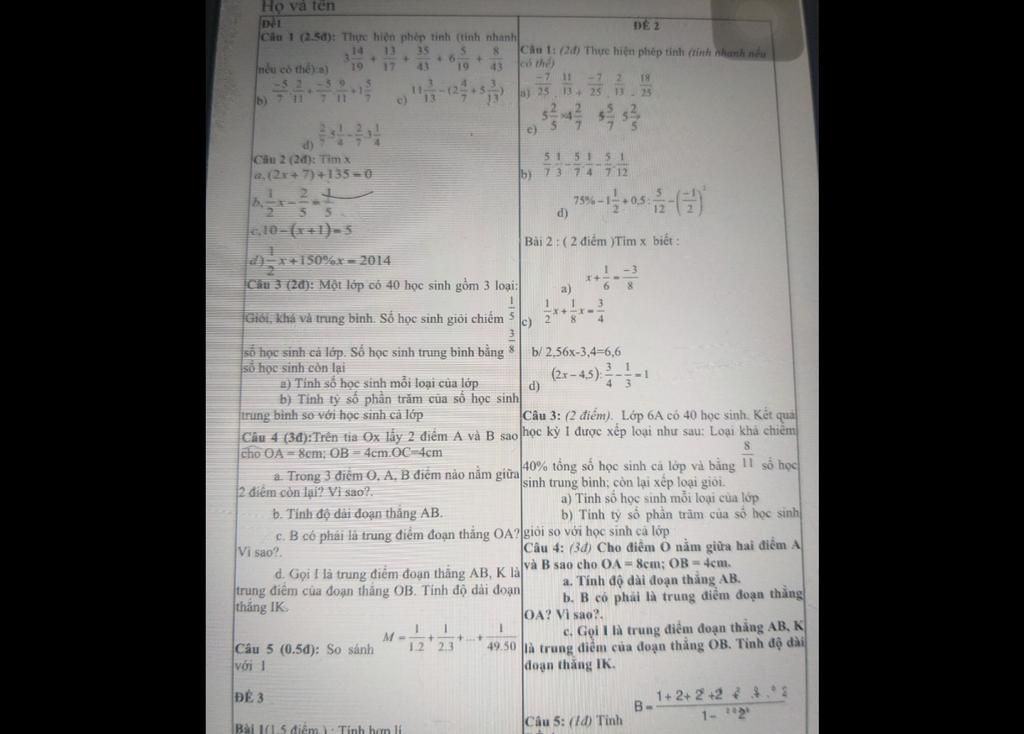 Họ và tên
Đề1
Câu 1 (2.5đ): Thực hiện phép tính (tính nhanh
nếu có thể):a) 3 14/19 + 13/17 + 35/43 + 6 5/19 + 8/43
b) -5/7 . 2/11 + -5/7 . 9/11 + 1 5/7 c) 11 3/13 - (2 4/7 + 5 3/13)
d) 2/7 . 5 1/4 - 2/7 . 3 1/4
Câu 2 (2đ): Tìm x
a, (2x + 7) + 135 = 0
b, 1/2 x - 2/5 = 1/5
c, 10 - (x + 1) = 5
d) 1/2 x + 150%x = 2014
Câu 3 (2đ): Một lớp có 40 học sinh gồm 3 loại:
Giỏi, khá và trung bình. Số học sinh giỏi chiếm 1/5
số học sinh cả lớp. Số học sinh trung bình bằng 3/8
số học sinh còn lại
a) Tính số học sinh mỗi loại của lớp
b) Tính tỷ số phần trăm của số học sinh
trung bình so với học sinh cả lớp
Câu 4 (3đ):Trên tia Ox lấy 2 điểm A và B sao
cho OA = 8cm; OB = 4cm.OC=4cm
a. Trong 3 điểm O, A, B điểm nào nằm giữa
2 điểm còn lại? Vì sao?.
b. Tính độ dài đoạn thẳng AB.
c. B có phải là trung điểm đoạn thẳng OA?
Vì sao?.
d. Gọi I là trung điểm đoạn thẳng AB, K là
trung điểm của đoạn thẳng OB. Tính độ dài đoạn
thẳng IK.
Câu 5 (0.5đ): So sánh M = 1/1.2 + 1/2.3 + ... + 1/49.50
với 1
ĐỀ 3
Bài 1(1,5 điểm ) : Tính hợp lí
ĐỀ 2
Câu 1: (2đ) Thực hiện phép tính (tính nhanh nếu
có thể)
a) -7/25 . 11/13 + -7/25 . 2/13 - 18/25
c) 5 2/5 × 4 2/7 5 5/7 5 2/5
b) 5/7 . 1/3 - 5/7 . 1/4 - 5/7 . 1/12
d) 75% - 1 1/2 + 0,5 : 5/12 - (-1/2)²
Bài 2 : ( 2 điểm )Tìm x biết :
a) x + 1/6 = -3/8
c) 1/2 x + 1/8 x = 3/4
b/ 2,56x-3,4=6,6
d) (2x - 4,5) : 3/4 - 1/3 = 1
Câu 3: (2 điểm). Lớp 6A có 40 học sinh. Kết quả
học kỳ I được xếp loại như sau: Loại khá chiếm
40% tổng số học sinh cả lớp và bằng 8/11 số học
sinh trung bình; còn lại xếp loại giỏi.
a) Tính số học sinh mỗi loại của lớp
b) Tính tỷ số phần trăm của số học sinh
giỏi so với học sinh cả lớp
Câu 4: (3đ) Cho điểm O nằm giữa hai điểm A
và B sao cho OA = 8cm; OB = 4cm.
a. Tính độ dài đoạn thẳng AB.
b. B có phải là trung điểm đoạn thẳng
OA? Vì sao?.
c. Gọi I là trung điểm đoạn thẳng AB, K
là trung điểm của đoạn thẳng OB. Tính độ dài
đoạn thẳng IK.
Câu 5: (1đ) Tính B =